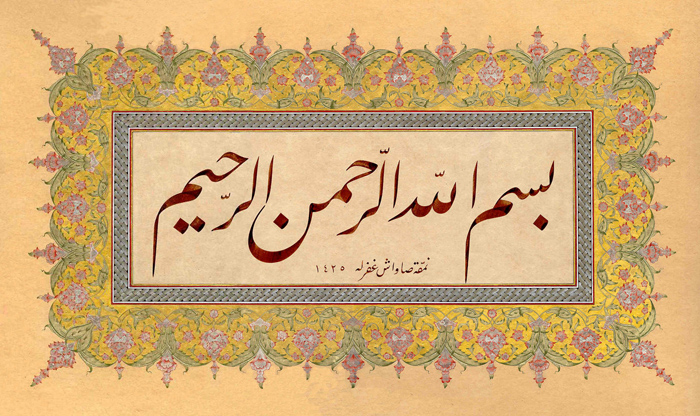 بسم الله الرّحمن الرّحیم
نمقه صاواش غفرله ١٤٢٥